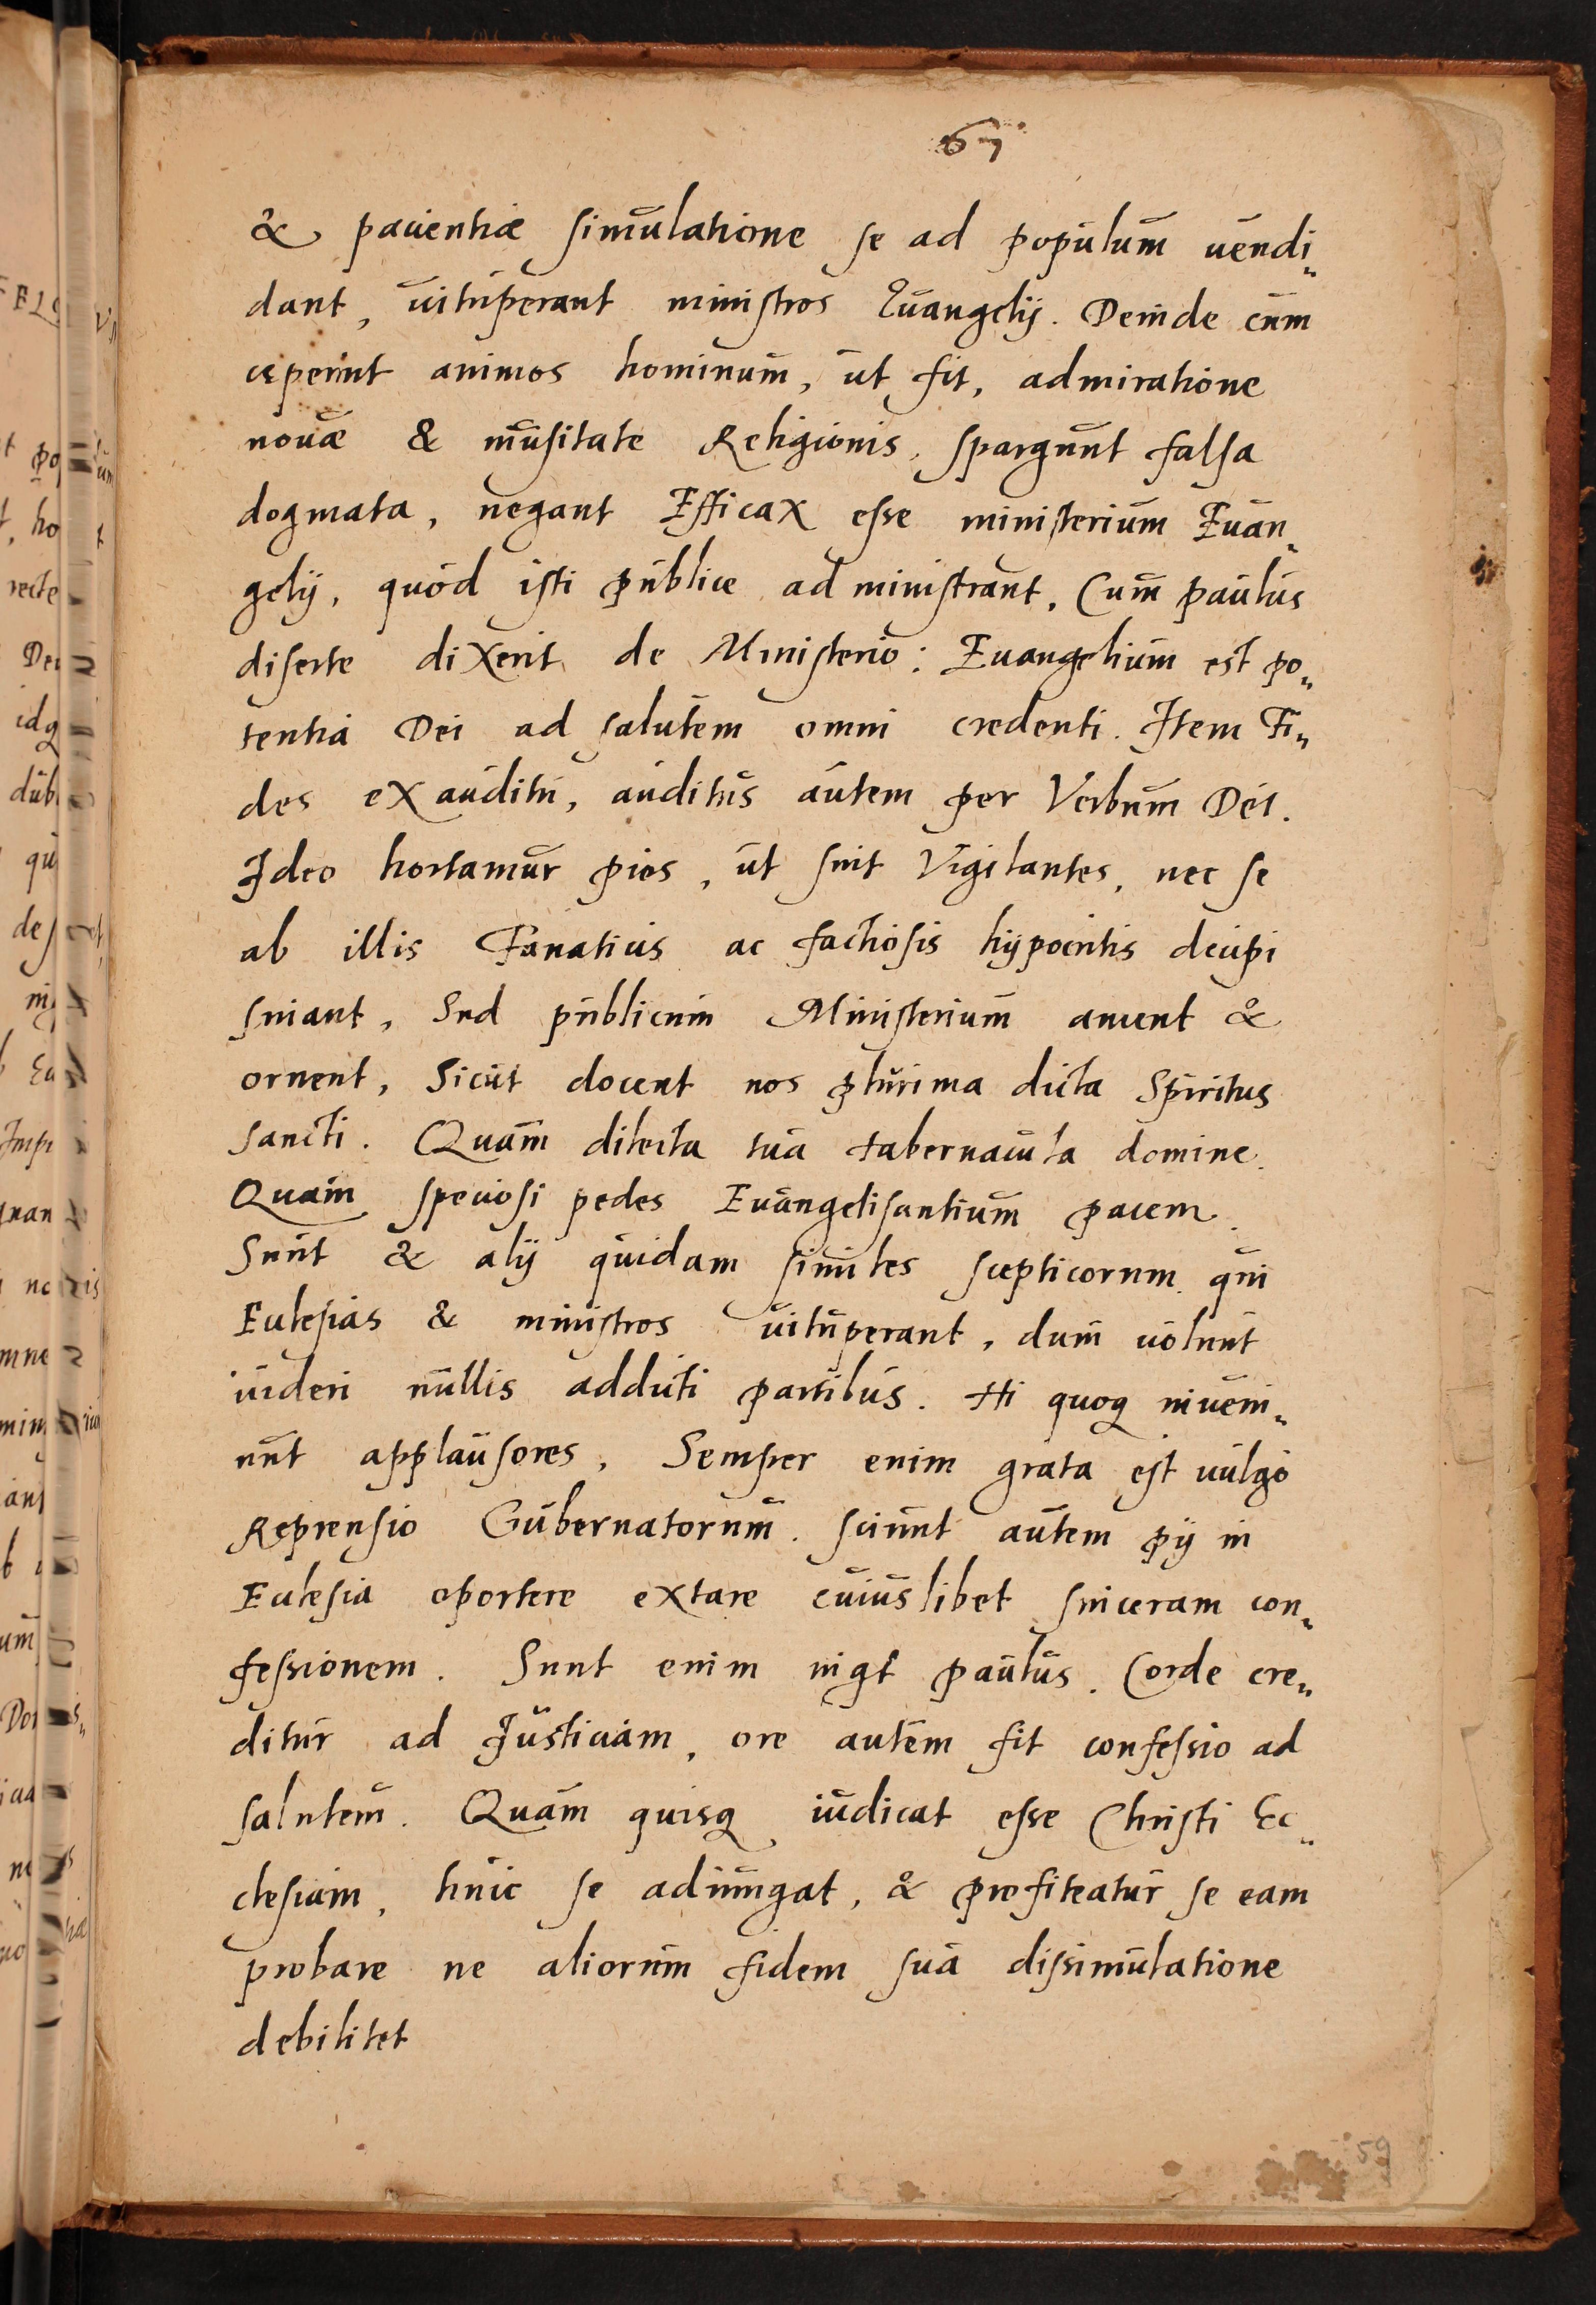 67
& pacientiæ simulatione se ad populum uendi„
dant, uituperant ministros Euangelij. Deinde cum
ceperint animos hominum, ut fit, admiratione
nouæ & inusitate Religionis, spargunt falsa
dogmata, negant Efficax esse ministerium Euan„
gelij, quod isti publice administrant. Cum paulus
diserte dixerit de Ministerio: Euangelium est po„
tentia Dei ad salutem omni credenti. Item Fi„
des ex auditu, auditus autem per Verbum Dei.
Ideo hortamur pios, ut sint Vigilantes, nec se
ab illis Fanaticis ac factiosis hypocritis decipi
siniant, Sed publicum Ministerium ament &
ornent, Sicut docent nos plurima dicta Spiritus
sancti. Quam dilecta tua tabernacula domine.
Quam speciosi pedes Euangelisantium pacem.
Sunt & alij quidam similes scepticorum qui
Eclesias & ministros uituperant, dum uolunt
uideri nullis adducti partibus. Hi quoq inueni„
unt applausores, Semper enim grata est uulgo
Reprensio Gubernatorum. sciunt autem pij in
Eclesia oportere extare cuiuslibet sinceram con„
fessionem. Sunt enim paulus. Corde cre„
ditur ad Justiciam, ore autem fit confessio ad
salutem. Quam quisq iudicat esse Christi Ec„
clesiam, huic se adiungat, & profiteatur se eam
probare ne aliorum fidem sua dissimulatione
debilitet
59